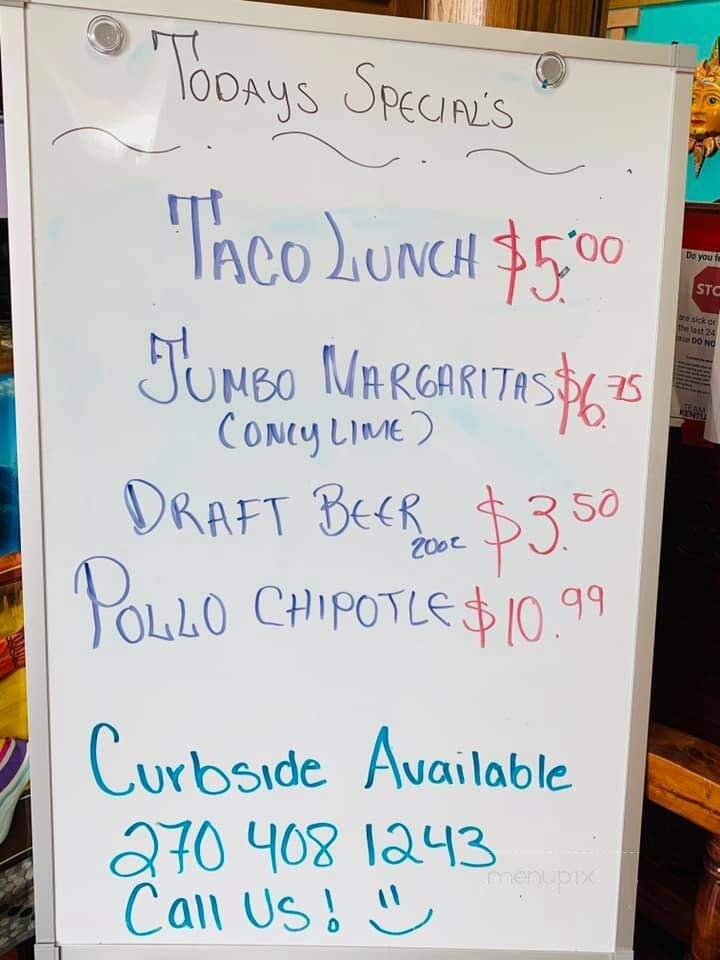 TODAYS SPECIAL'S
TACO LUNCH $5.00
JUMBO MARGARITAS $6.75
(ONLY LIME)
DRAFT BEER 20oz $3.50
POLLO CHIPOTLE $10.99
Curbside Available
270 408 1243
Call Us!
menupix
Do you fe
STO
are sick or
the last 24
ease DO NO
TEAM
KENTU